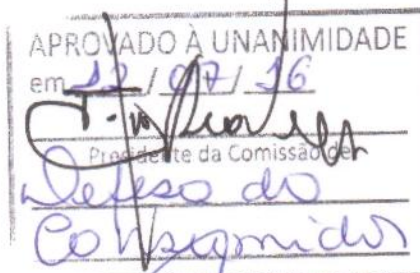 APROVADO À UNANIMIDADE
em 12 / 07 / 16
Presidente da Comissão de
Defesa do
Consumidor